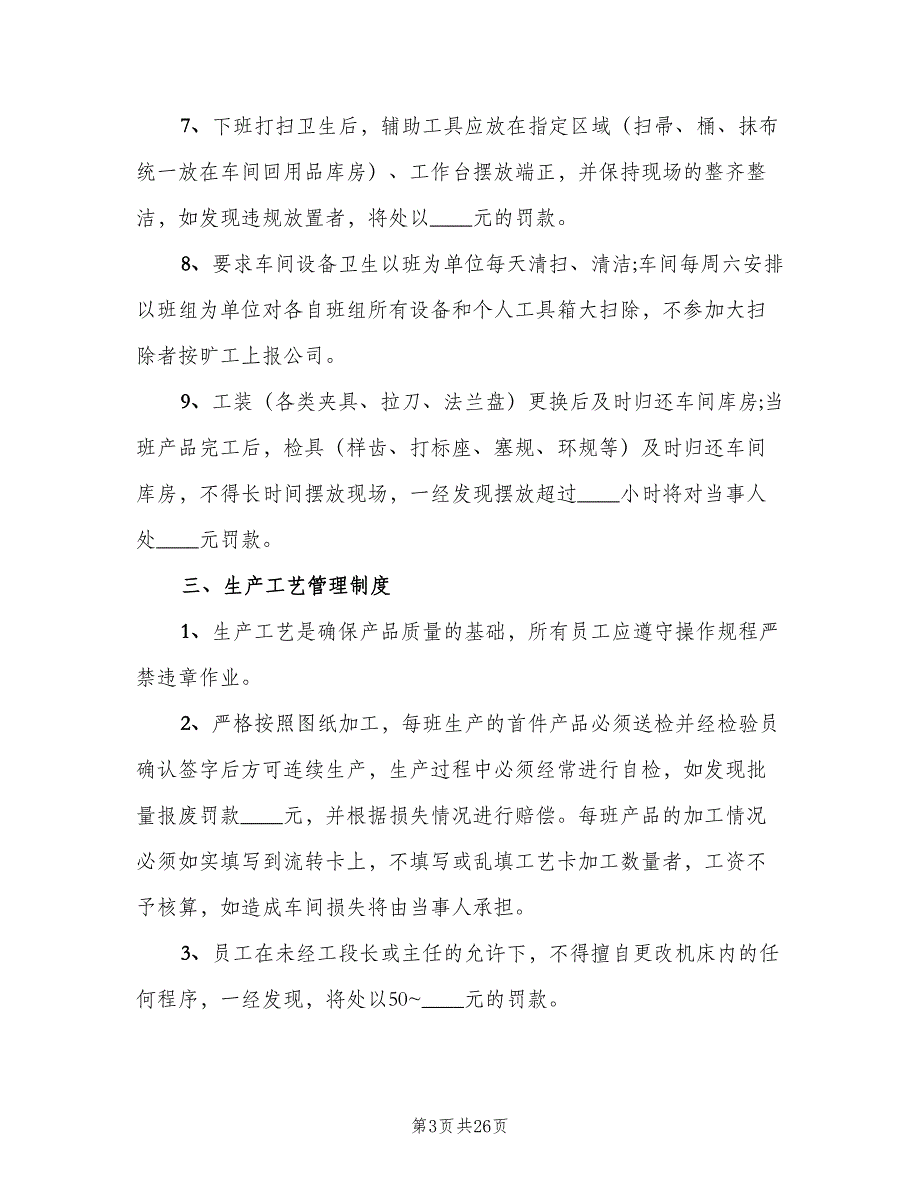 7、下班打扫卫生后，辅助工具应放在指定区域（扫帚、桶、抹布
统一放在车间回用品库房）、工作台摆放端正，并保持现场的整齐整
洁，如发现违规放置者，将处以____元的罚款。
8、要求车间设备卫生以班为单位每天清扫、清洁;车间每周六安排
以班组为单位对各自班组所有设备和个人工具箱大扫除，不参加大扫
除者按旷工上报公司。
9、工装（各类夹具、拉刀、法兰盘）更换后及时归还车间库房;当
班产品完工后，检具（样齿、打标座、塞规、环规等）及时归还车间
库房，不得长时间摆放现场，一经发现摆放超过____小时将对当事人
处____元罚款。
三、生产工艺管理制度
1、生产工艺是确保产品质量的基础，所有员工应遵守操作规程严
禁违章作业。
2、严格按照图纸加工，每班生产的首件产品必须送检并经检验员
确认签字后方可连续生产，生产过程中必须经常进行自检，如发现批
量报废罚款____元，并根据损失情况进行赔偿。每班产品的加工情况
必须如实填写到流转卡上，不填写或乱填工艺卡加工数量者，工资不
予核算，如造成车间损失将由当事人承担。
3、员工在未经工段长或主任的允许下，不得擅自更改机床内的任
何程序，一经发现，将处以50~____元的罚款。
第3页共26页